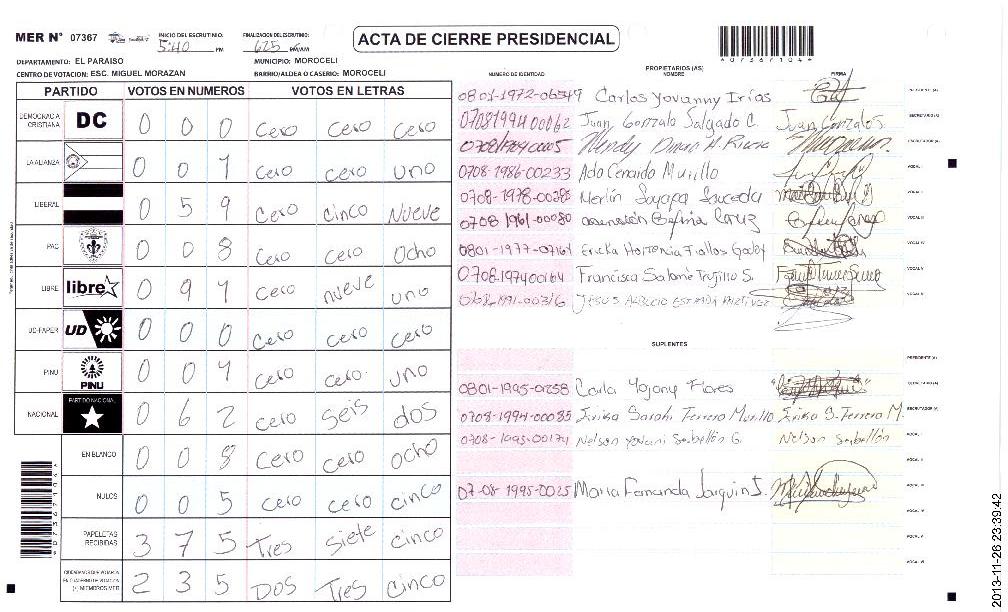 MER N° 07367 INICIO DEL ESCRUTINIO: 5:40 PM FINALIZACION DEL ESCRUTINIO: 625 PM/AM
ACTA DE CIERRE PRESIDENCIAL
*073671044*
DEPARTAMENTO: EL PARAISO MUNICIPIO: MOROCELI
CENTRO DE VOTACION: ESC. MIGUEL MORAZAN BARRIO/ALDEA O CASERIO: MOROCELI
PARTIDO VOTOS EN NUMEROS VOTOS EN LETRAS
DEMOCRACIA CRISTIANA DC 0 0 0 Cero Cero Cero
LA ALIANZA 0 0 1 Cero Cero Uno
LIBERAL 0 5 9 Cero Cinco Nueve
PAC 0 0 8 Cero Cero Ocho
LIBRE libre 0 9 1 Cero nueve uno
UD-FAPER UD 0 0 0 Cero Cero Cero
PINU PINU 0 0 1 Cero Cero uno
NACIONAL PARTIDO NACIONAL 0 6 2 Cero Seis dos
EN BLANCO 0 0 8 Cero Cero Ocho
NULOS 0 0 5 Cero Cero Cinco
PAPELETAS RECIBIDAS 3 7 5 Tres Siete Cinco
CIUDADANOS QUE VOTARON EN CUADERNO DE VOTACION (+) MIEMBROS MER 2 3 5 Dos Tres Cinco
NUMERO DE IDENTIDAD PROPIETARIOS (AS) NOMBRE FIRMA
0801-1972-06549 Carlos Yovanny Irías PRESIDENTE (A)
0708199400062 Juan Gonzalo Salgado C. Juan Gonzalo S. SECRETARIO (A)
ESCRUTADOR (A)
0708-1986-00233 Ado Cenardo Murillo VOCAL I
0708-1978-00285 Merlin Sauceda VOCAL II
0708 1961-00080 VOCAL III
0801-1977-07161 Ericka Hortencia Fiallos Godoy VOCAL IV
0708197400164 Francisca Salome Trujillo S. VOCAL V
0708-1991-00316 JESUS ESTRADA MARTINEZ
SUPLENTES
PRESIDENTE (A)
0801-1995-01258 Carla Yojany Flores SECRETARIO (A)
0708-1994-00085 Erika Sarahi Ferrera Murillo Erika S. Ferrera M. ESCRUTADOR (A)
0708-1993-00174 Nelson Yovani Seibellón G. Nelson Seibellón VOCAL I
VOCAL II
07-08-1995-0025 Maria Fernanda Jarquin S. VOCAL III
VOCAL IV
VOCAL V
VOCAL VI
2013-11-26 23:39:42